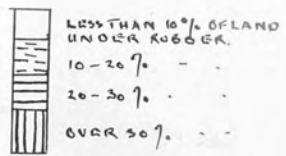 LESS THAN 10% OF LAND
UNDER RUBBER.
10-20% " "
20-30% " "
OVER 30% " "